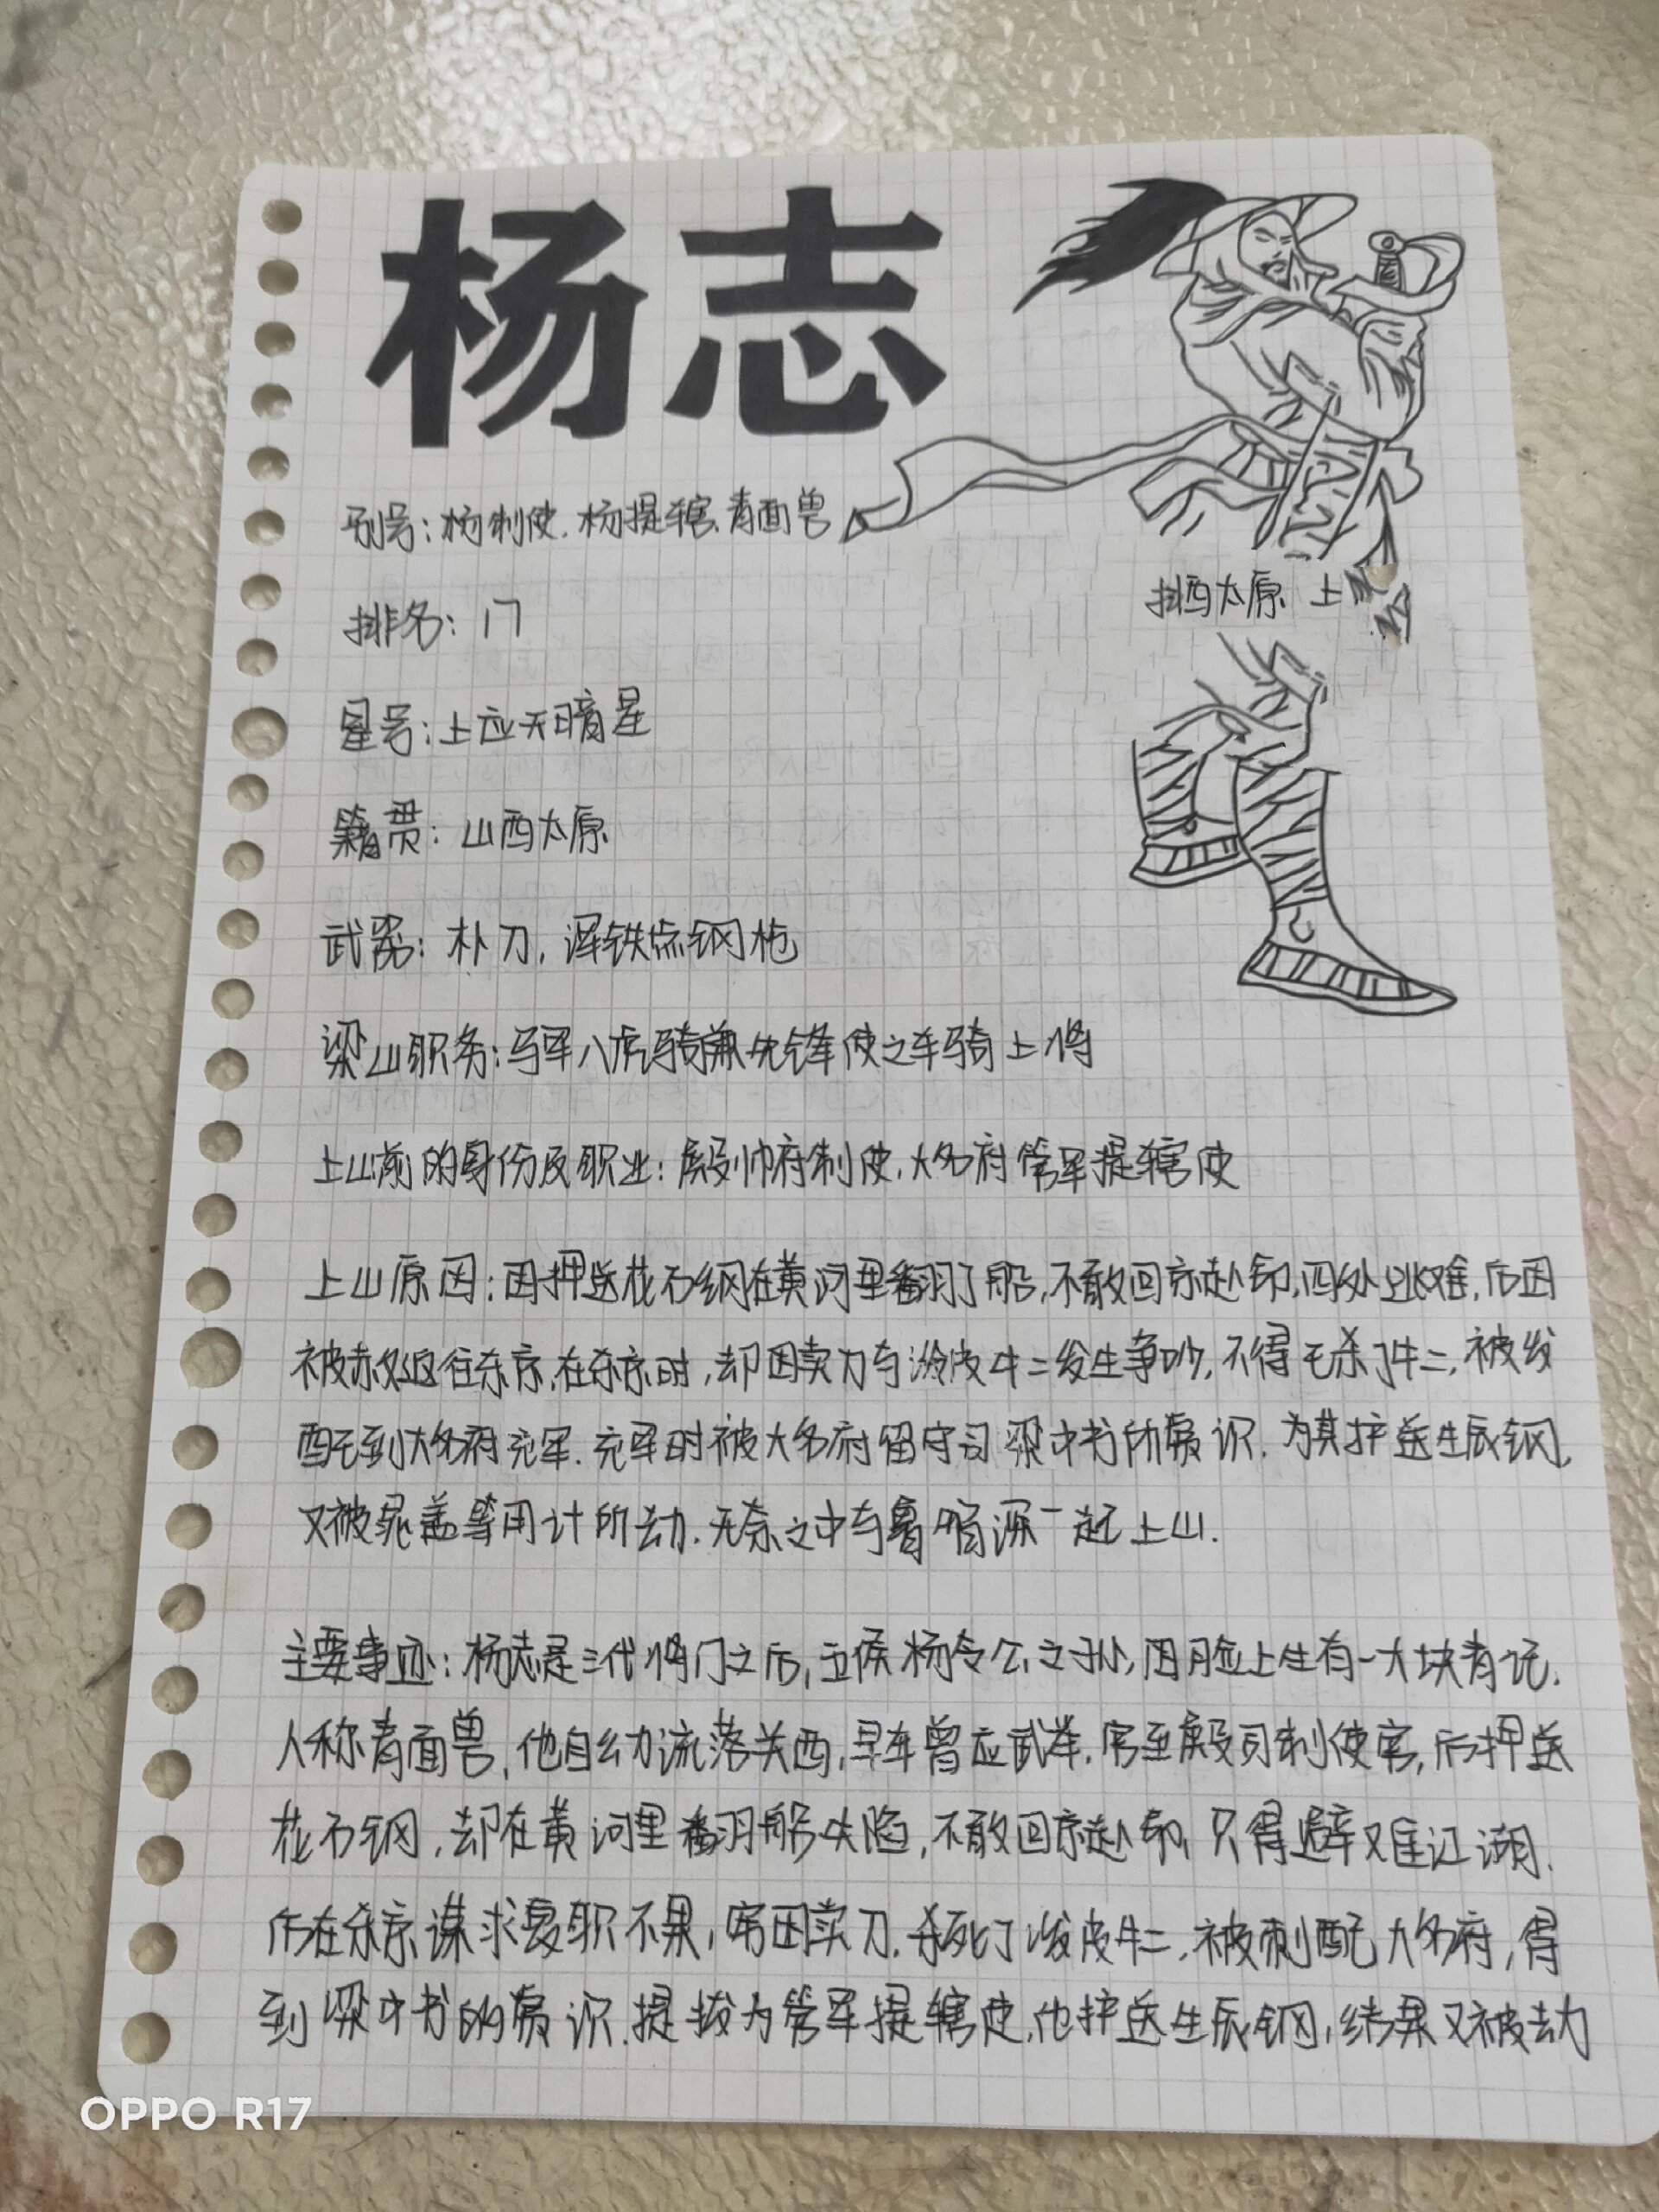 杨志
别号：杨制使.杨提辖.青面兽
排名：17
排西太原 上
星号：上应天暗星
籍贯：山西太原
武器：朴刀，浑铁点钢枪
梁山职务：马军八虎骑兼先锋使之车骑上将
上山前的身份及职业：殿帅府制使.大名府管军提辖使
上山原因：因押送花石纲在黄河里翻了船，不敢回京赴任，四处避难，后因
被赦返往东京.在东京时，却因卖刀与泼皮牛二发生争吵，不得已杀了牛二，被发
配到大名府充军.充军时被大名府留守司梁中书所赏识.为其护送生辰钢，
又被晁盖等用计所劫.无奈之中与鲁智深一起上山.
主要事迹：杨志是三代将门之后，五侯杨令公之孙，因脸上生有一大块青记.
人称青面兽，他自幼流落关西，早年曾应武举.官至殿司制使官，后押送
花石钢，却在黄河里翻船失陷，不敢回京赴任，只得避难江湖.
后在东京谋求复职不果，穷困卖刀.杀死了泼皮牛二，被刺配大名府，得
到梁中书的赏识.提拔为管军提辖使.他护送生辰钢，结果又被劫
OPPO R17